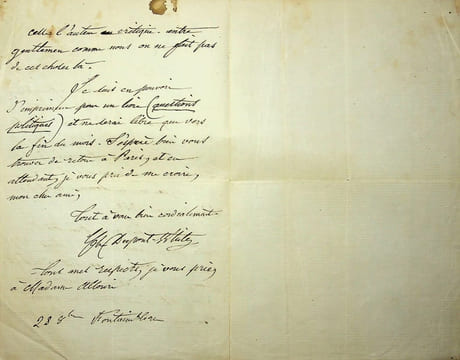 celle de l'auteur au critique. entre
gentlemen comme nous on ne fait pas
de ces choses là.
Je suis en pouvoir
d'imprimeur pour un livre (questions
politiques) et ne serai libre que vers
la fin du mois. J'espère bien vous
trouver de retour à Paris, et en
attendant, je vous prie de me croire,
mon cher ami,
tout à vous bien cordialement.
Ch. Dupont-White
tous mes respects, je vous prie,
à Madame
23 9bre Fontainebleau